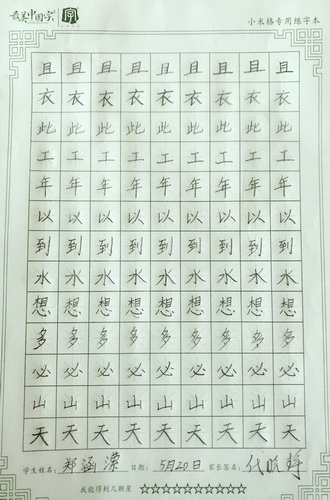 最美中国字 小米格专用练字本
且且且且且且且且且
衣衣衣衣衣衣衣衣衣
此此此此此此此此此
工工工工工工工工工
年年年年年年年年年
以以以以以以以以以
到到到到到到到到到
水水水水水水水水水
想想想想想想想想想
多多多多多多多多多
必必必必必必必必必
山山山山山山山山山
天天天天天天天天天
学生姓名: 郑涵 日期: 5月20日 家长签名: 代晓
我能得到几颗星 ☆☆☆☆☆☆☆☆☆☆